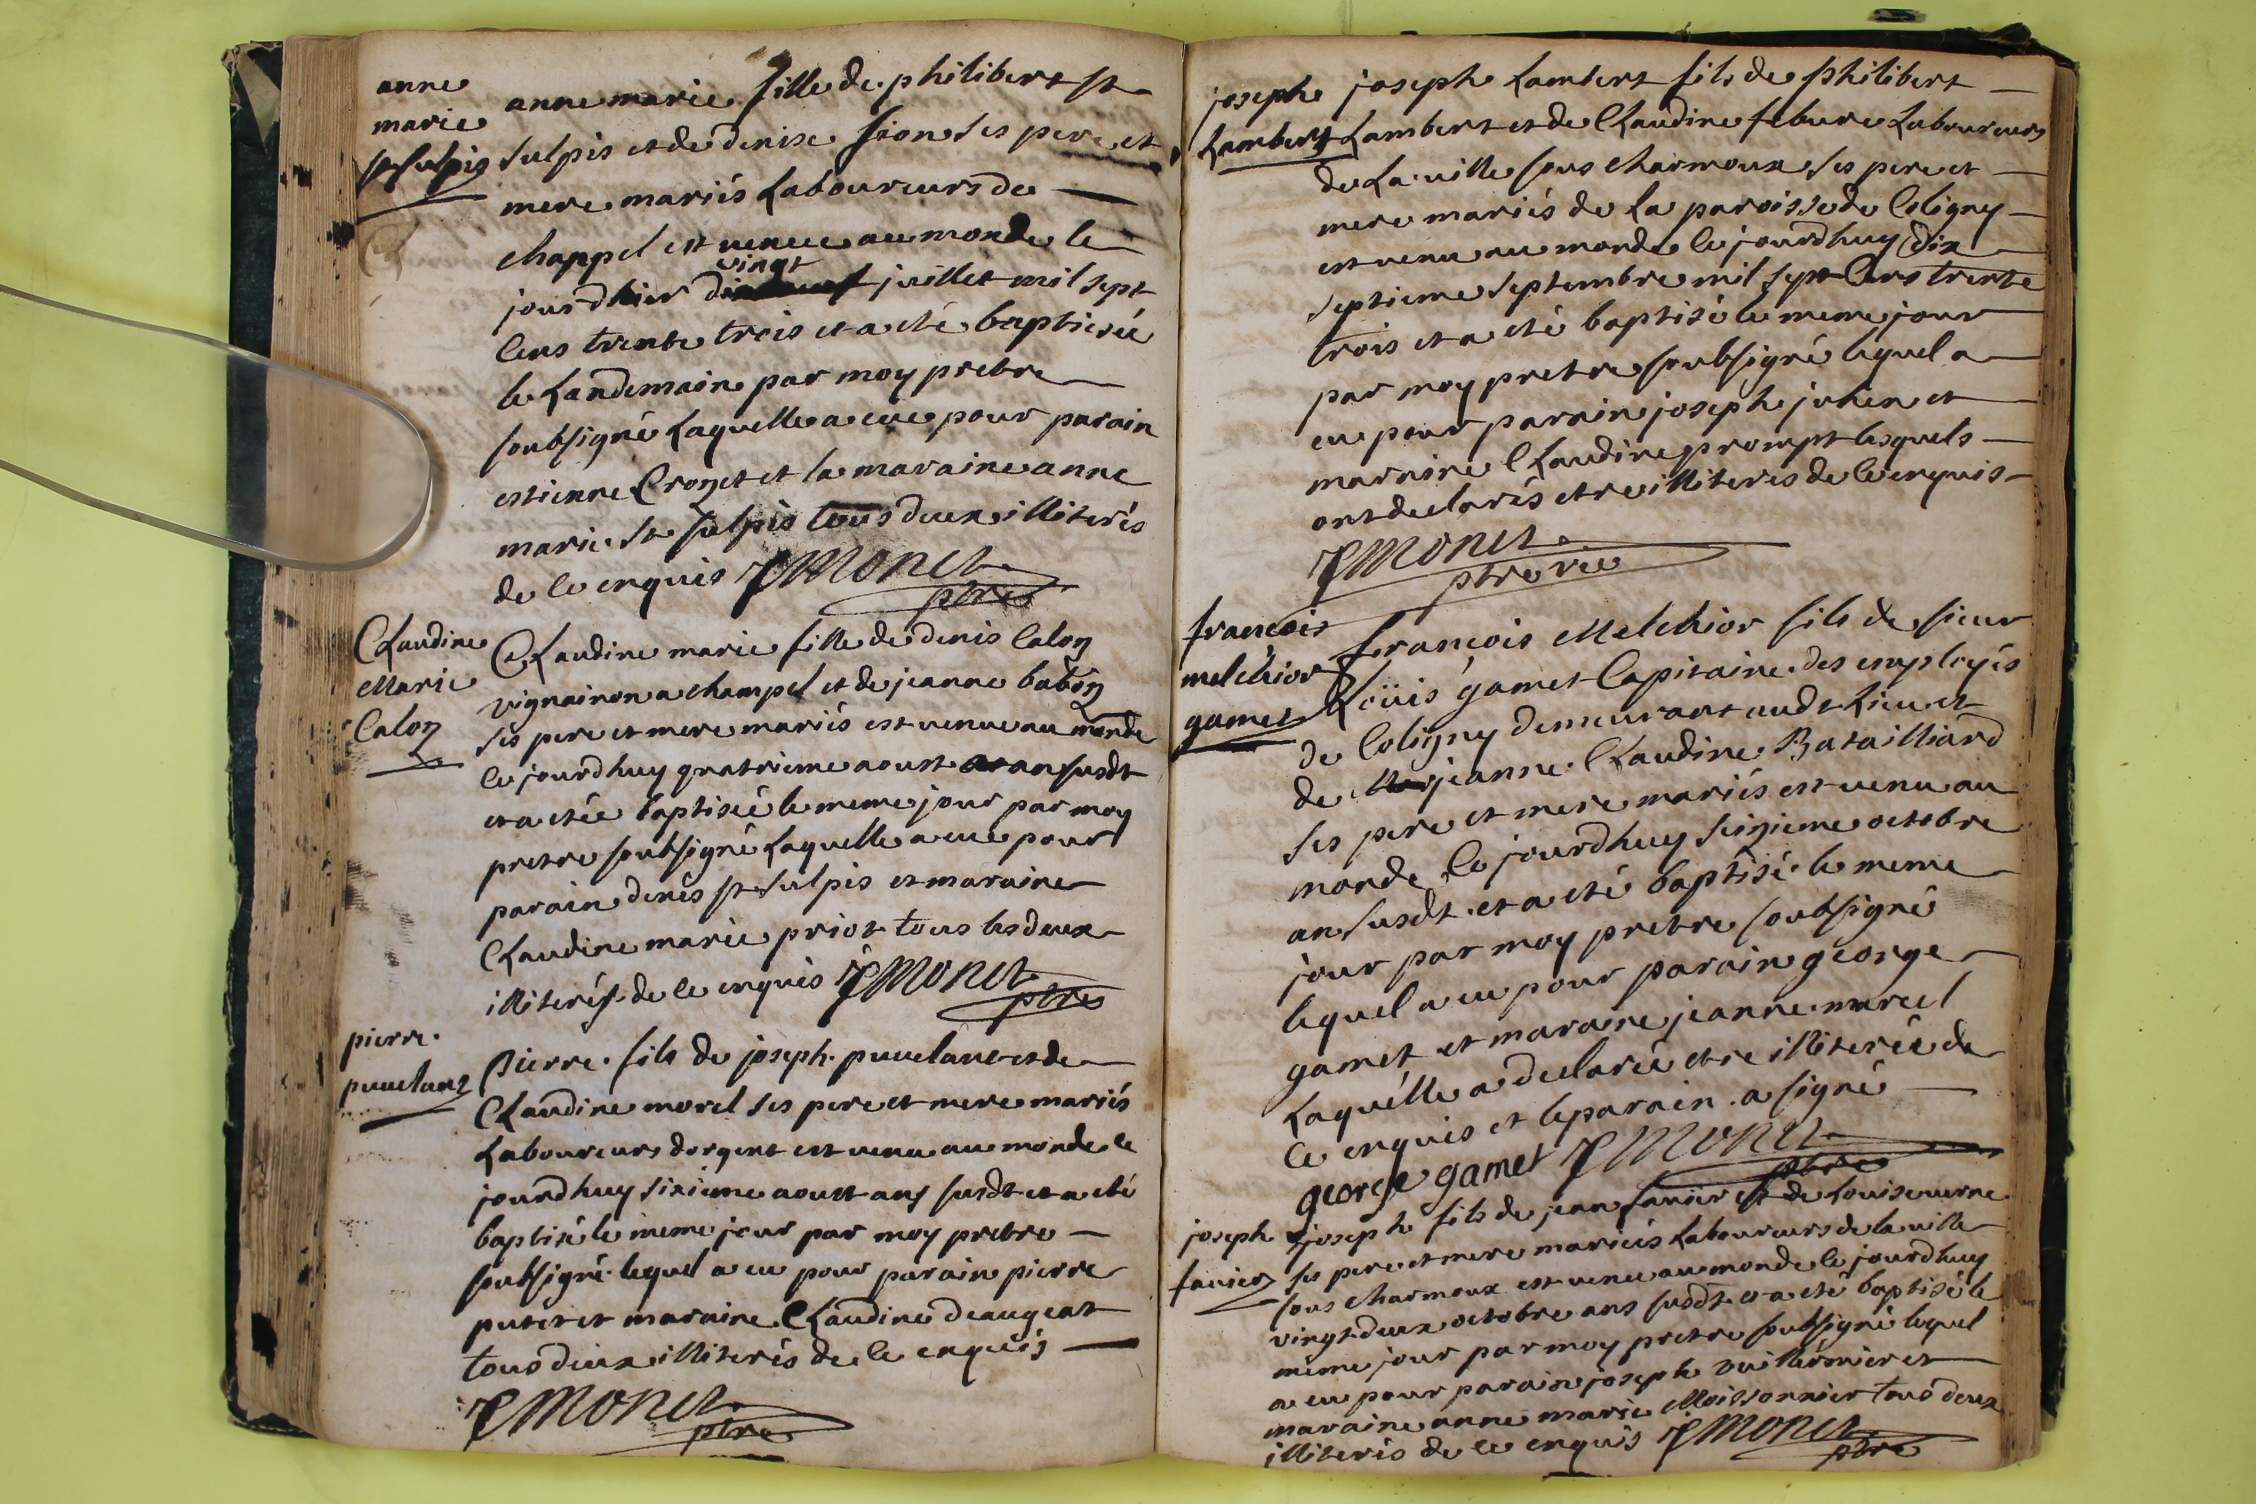 anne
marie
st sulpis
anne marie fille de philibert st
sulpis et de denise sion ses pere et
mere mariés Laboureurs de
chappel est venue au monde le
jour d hier vingt juillet mil sept
Cens trente trois et a eté baptisée
le Landemain par moy pretre
soubsigné Laquelle a eue pour parain
estienne Crozet et la maraine anne
marie st sulpis tous deux illiterés
de ce enquis J Monet
ptre
Claudine
Marie
Calon
Claudine marie fille de denis Calon
vignairon a champel et de jeanne babon
ses pere et mere mariés est venue au monde
le jourdhuy quatrieme aoust an susdt
et a etée baptisée le meme jour par moy
pretre soubsigné Laquelle a eue pour
parain denis st sulpis et maraine
Claudine marie priot tous les deux
illiterés de ce enquis J Monet
ptre
pierre
puvelanz
Pierre fils de joseph puvelanz et de
Claudine morel ses pere et mere mariés
Laboureurs dorgent est venu au monde le
jourdhuy sixieme aoust ans susdt et a eté
baptisé le meme jour par moy pretre
soubsigné lequel a eu pour parain pierre
putet et maraine Claudine deaugeat
tous deux illiterés de ce enquis
J Monet
ptre
joseph
Lambert
joseph Lambert fils de philibert
Lambert et de Claudine febure Laboureurs
de La ville sous charmoux ses pere et
mere mariés de La paroisse de Coligny
est venu au monde le jourdhuy dix
septieme septembre mil sept Cens trente
trois et a eté baptisé le meme jour
par moy pretre soubsigné lequel a
eu pour parain joseph julien et
maraine Claudine prompt lesquels
ont declarés etre illiteres de ce enquis
J Monet
ptre vre
françois
melchior
gamet
françois Melchior fils de sieur
Loüis gamet Capitaine des employés
de Coligny demeurant audt Lieu et
de jeanne Claudine Batailliard
ses pere et mere mariés est venu au
monde le jourdhuy seizieme octobre
an susdt et a eté baptisé le meme
jour par moy pretre soubsigné
lequel a eu pour parain george
gamet et maraine jeanne marcel
Laquelle a declarée etre illiterée de
Ce enquis et le parain a signé
george gamet J Monet
ptre
joseph
favier
joseph fils de jean favier et de Louise verne
ses pere et mere mariés Laboureurs de la ville
sous charmoux est venu au monde le jourdhuy
vingt deux octobre ans susdt et a eté baptisé le
meme jour par moy pretre soubsigné lequel
a eu pour parain joseph vuillermier et
maraine anne marie Moissonnier tous deux
illiterés de ce enquis J Monet
ptre